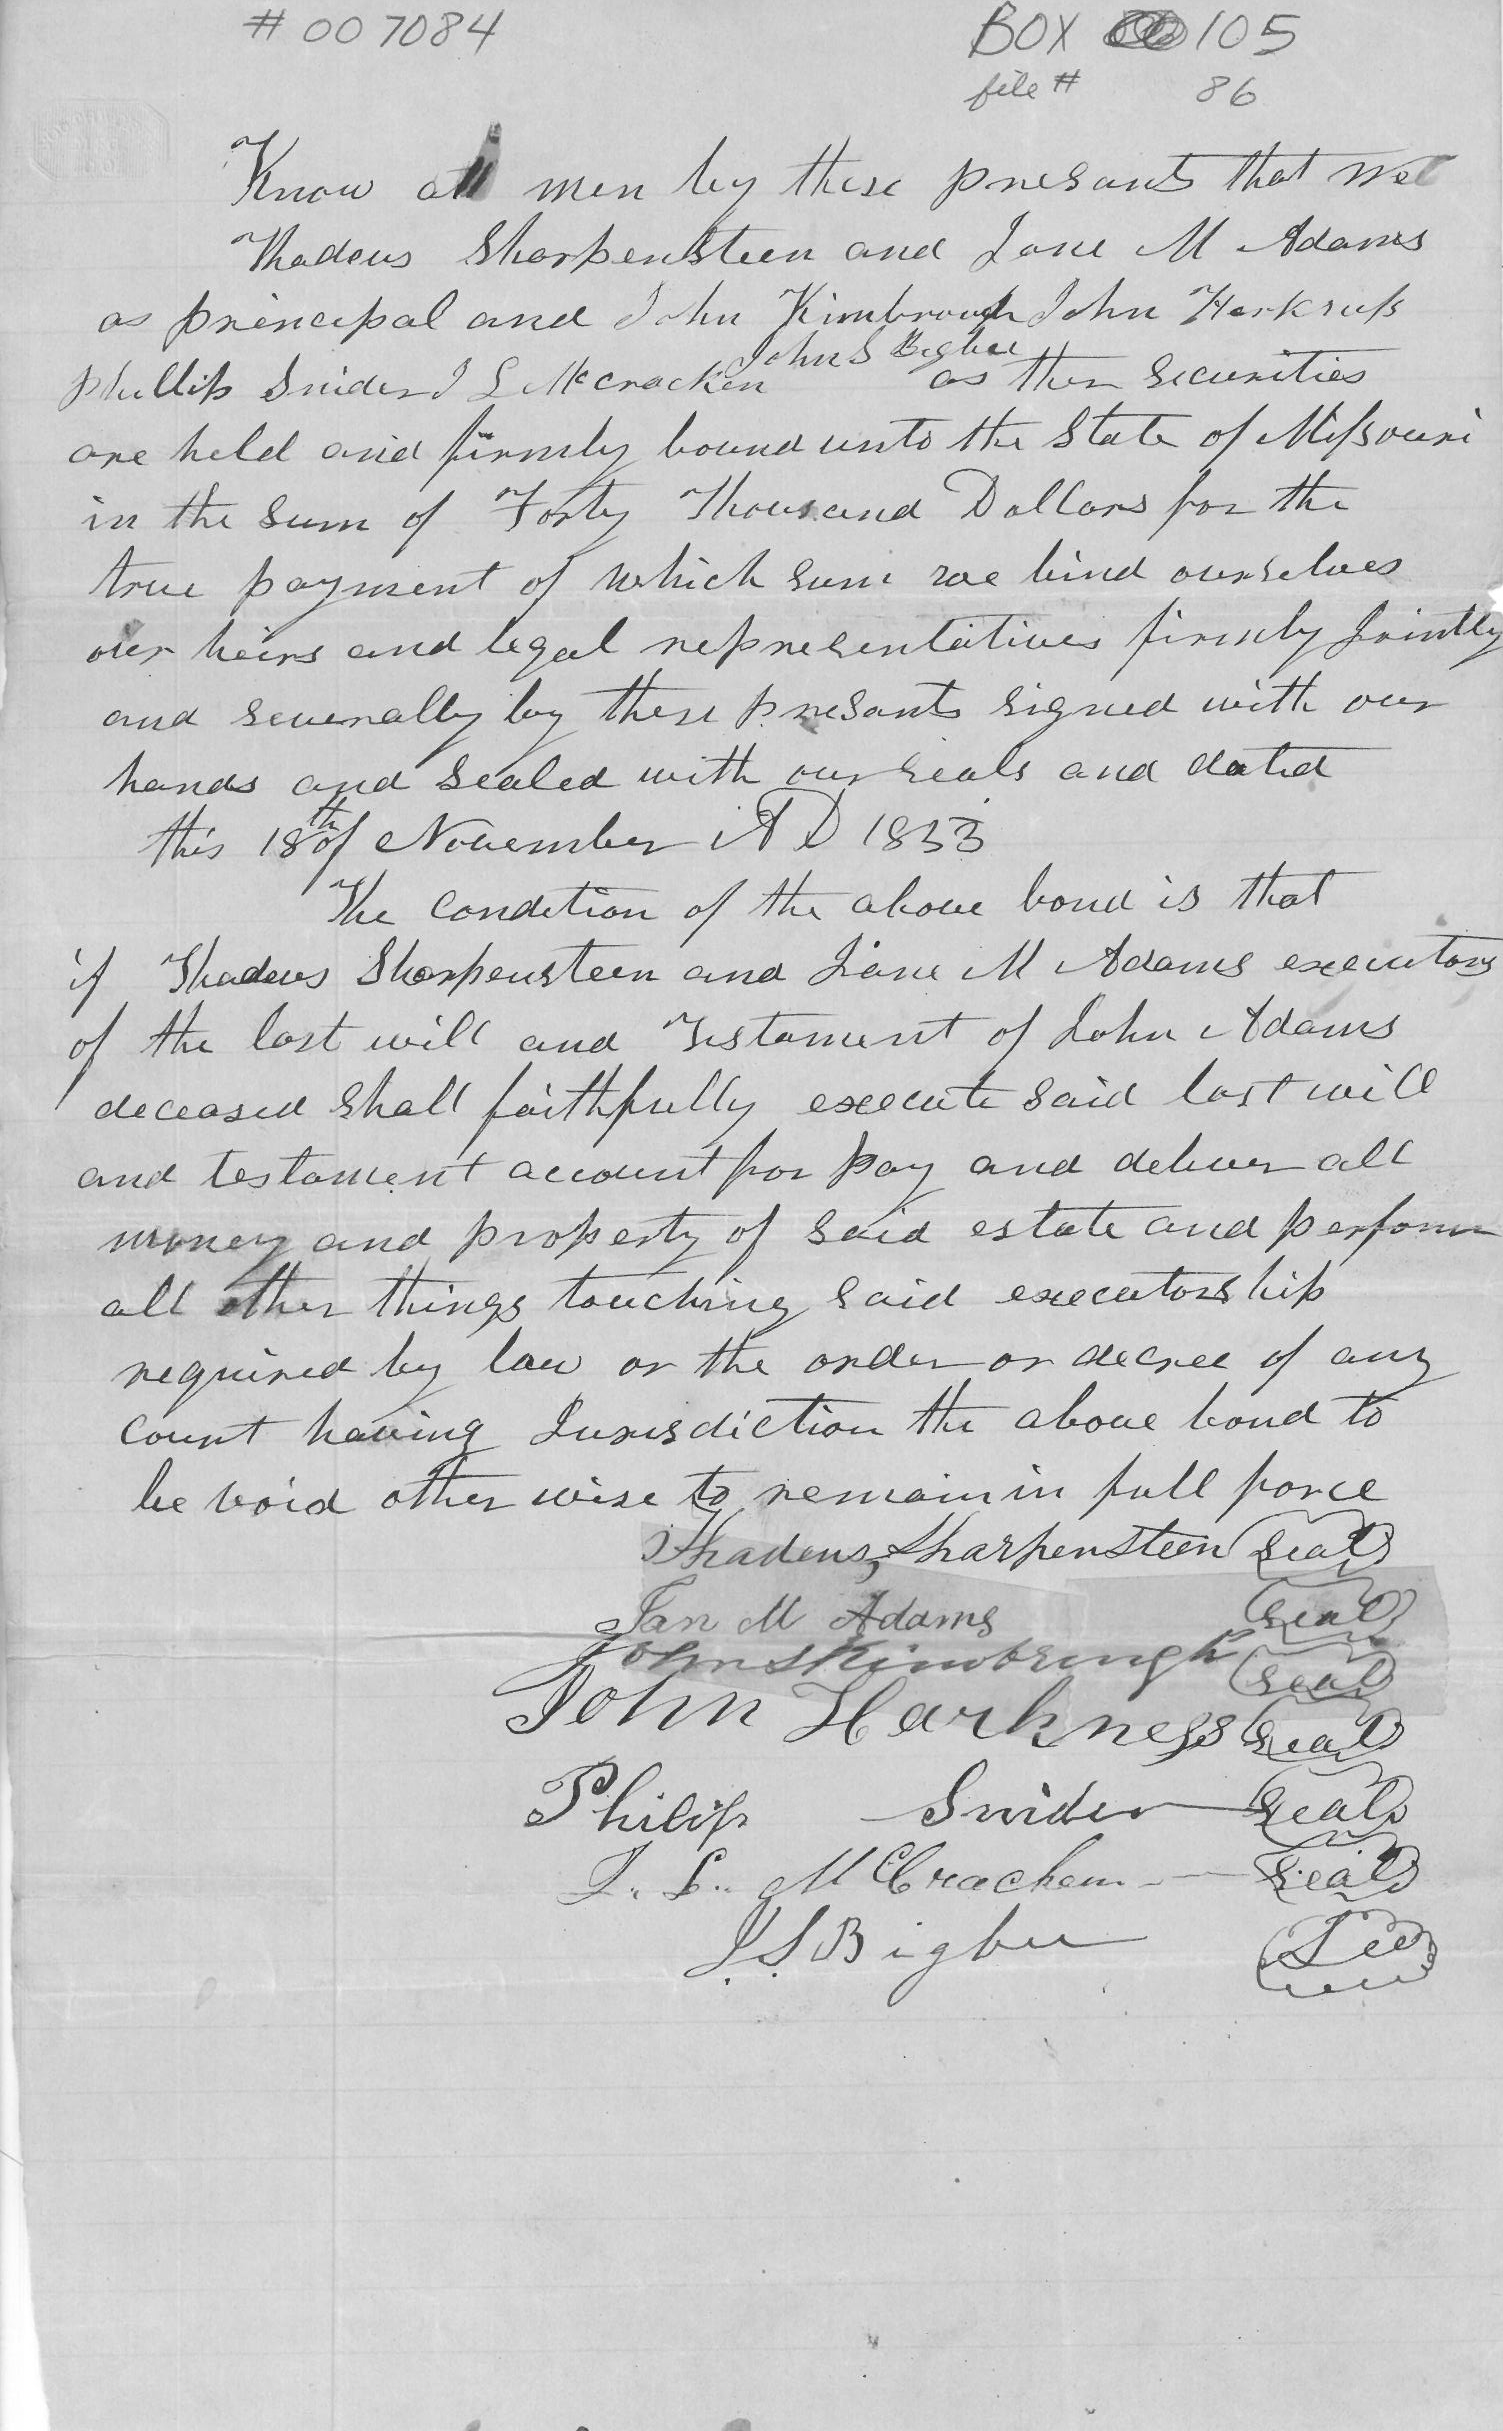 # 007084
BOX 105
file # 86
Know all men by these presants that we
Thadeus Sharpensteen and Jane M Adams
as principal and John Kimbrough John Harkness
John S Bigbee
Phillip Snider J L McCracken as ther securities
are held and firmly bound unto the State of Missouri
in the sum of Forty Thousand Dollars for the
true payment of which sum we bind ourselves
our heirs and legal representatives firmly Jointly
and severally by these presants signed with our
hands and sealed with our seals and dated
this 18th of November AD 1853
The condition of the above bond is that
if Thadeus Sharpensteen and Jane M Adams executors
of the last will and Testament of John Adams
deceased shall faithfully execute said last will
and testament account for pay and deliver all
money and property of said estate and perform
all other things touching said executorship
required by law or the order or decree of any
court having Jurisdiction the above bond to
be void other wise to remain in full force
Thadeus Sharpensteen seal
Jan M Adams seal
John S Kimbrough seal
John Harkness seal
Philip Snider seal
J. L. McCracken seal
J. S. Bigbee